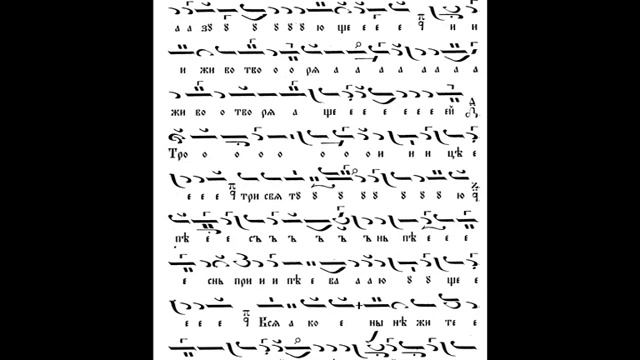 а а зꙋ ꙋ ꙋ ꙋ ꙋ ꙋ ю ще е е е е и и
и жи во тво о о рѧ а а а а а а а
жи во о тво рѧ а ще е е е е е ей
Тро о о о о о о ои и и цѣ е
е е е три свѧ тꙋ ꙋ ꙋ ꙋ ꙋ ꙋ ꙋ ю
пѣ е е съ ъ ъ ъ ъ ъ нь пѣ е е е
е снь при и и пѣ е ва а а ю ꙋ ще е
е е е Всѧ а ко е ны нѣ жи те е